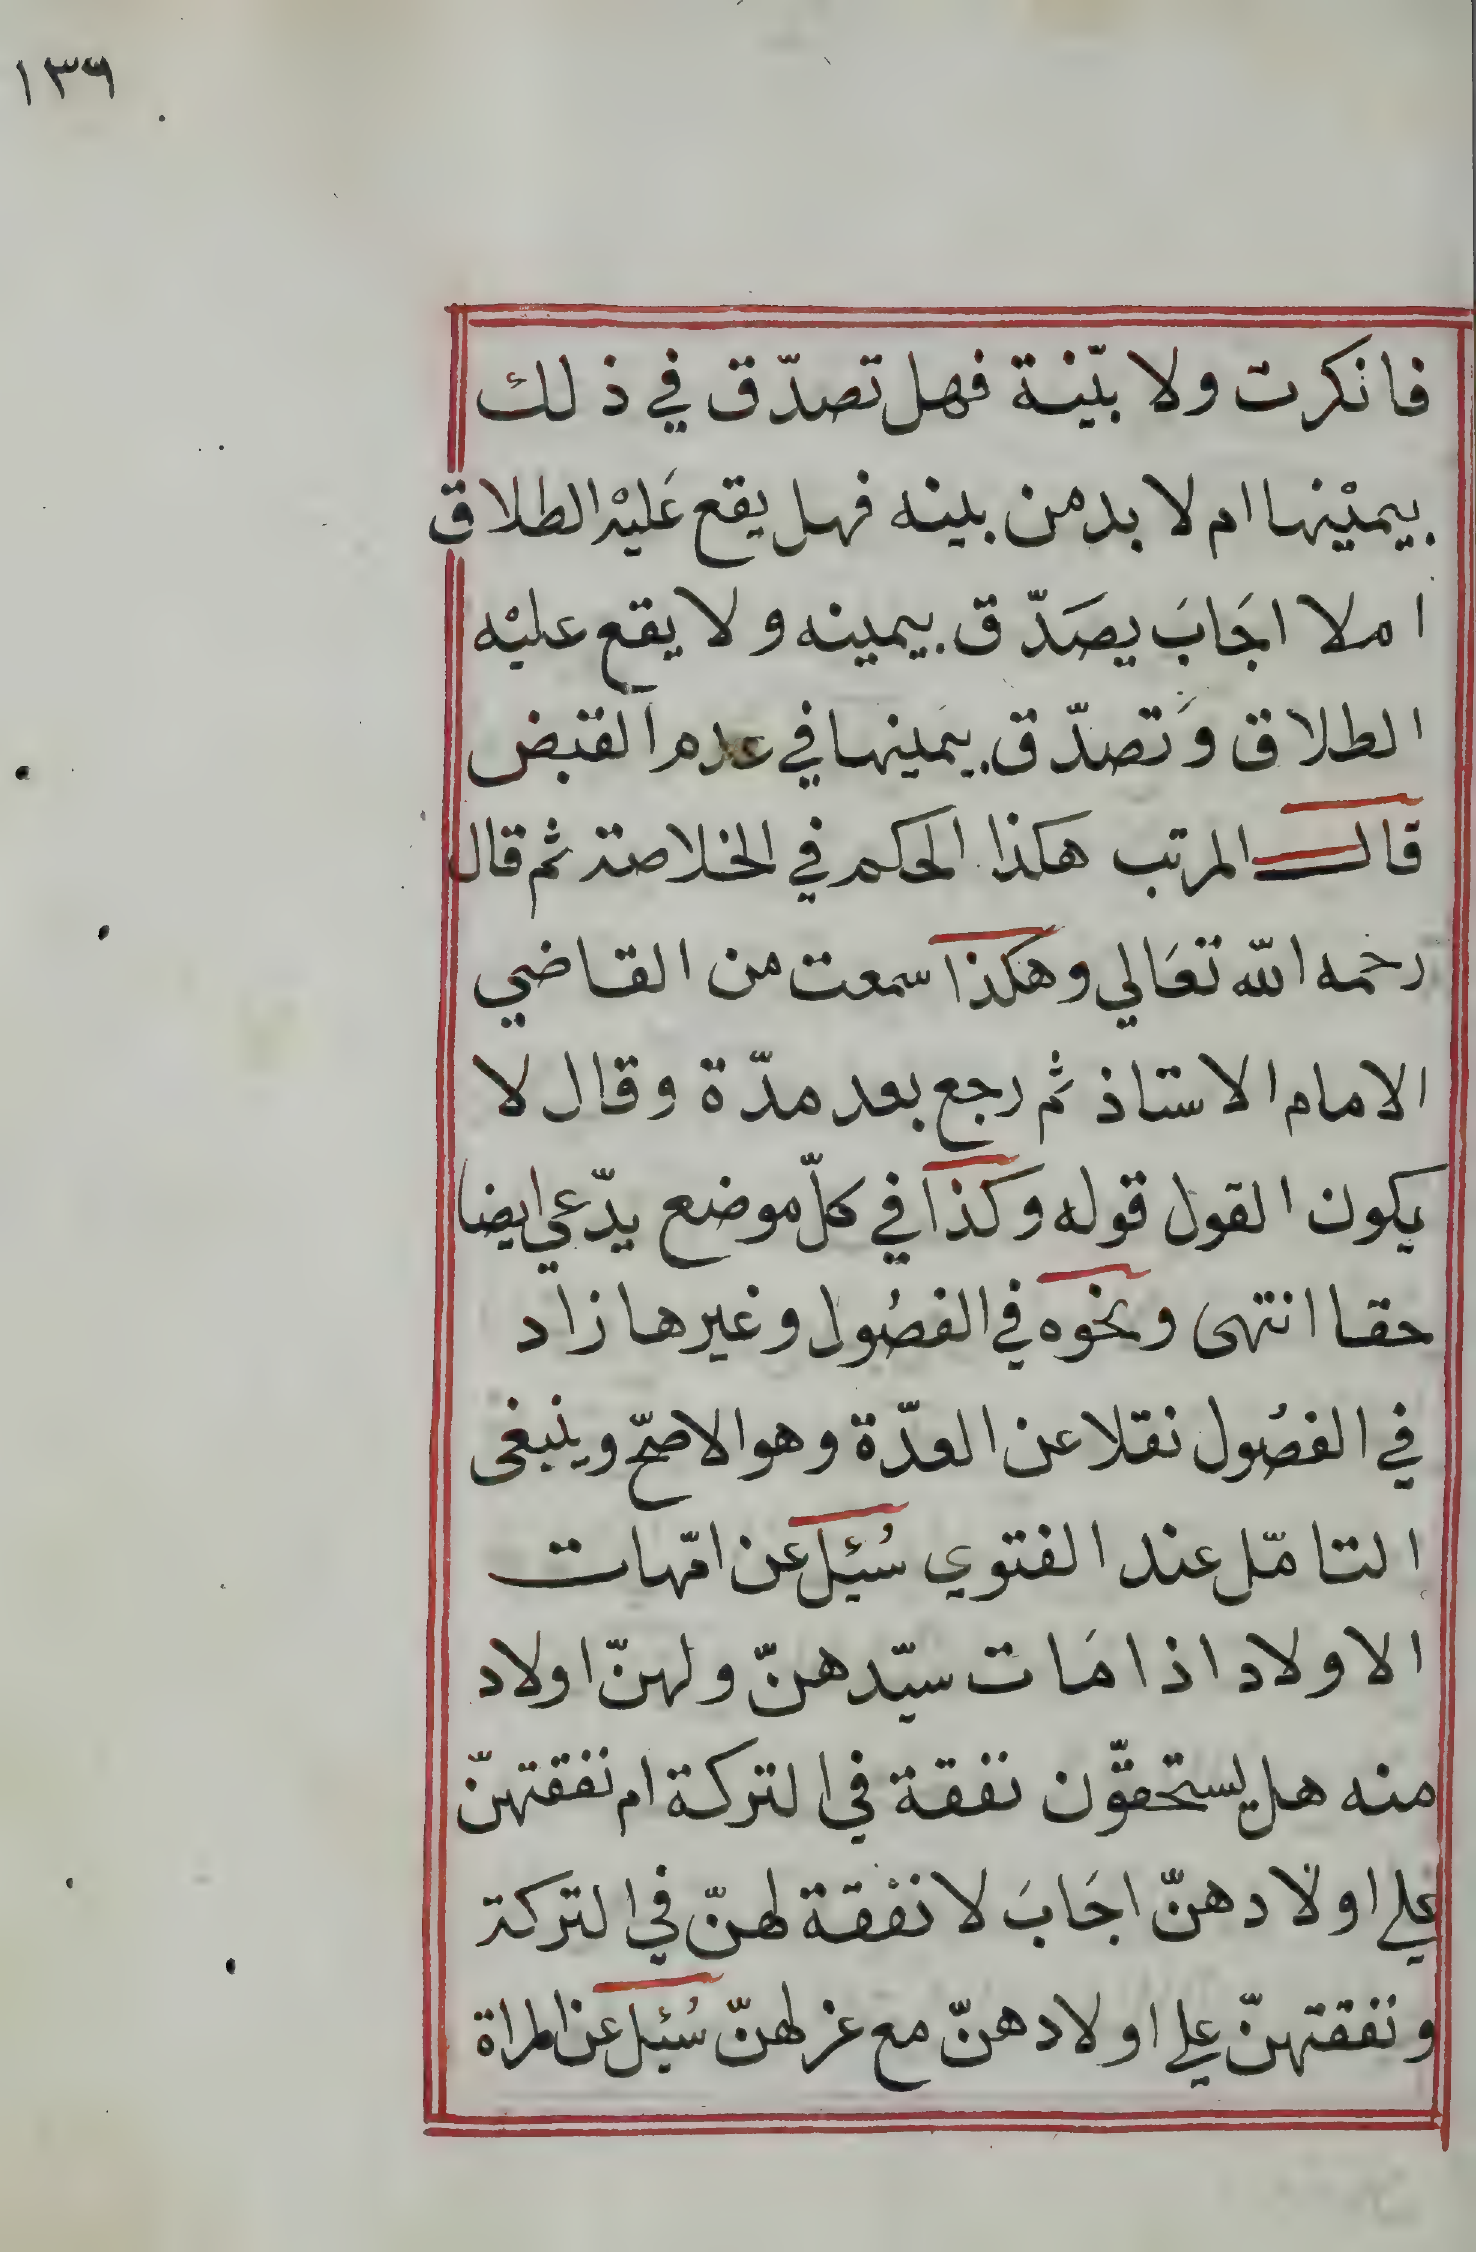 ١٣٦
فانكرت ولا بيّنة فهل تصدّق في ذلك
بيميْنها ام لا بد من بينه فهل يقع عَليْه الطلاق
املا اجَابَ يصَدّق بيمينه ولا يقع عليْه
الطلاق وَتصدّق بيمَينها في عدم القبض
قال المرتب هكذا الحكم في الخلاصة ثم قال
رحمه الله تعَالي وهكذا سمعت من القاضي
الامام الاستاذ ثم رجع بعد مدّة وقال لا
يكون القول قوله وكذا في كلّ موضع يدّعي ايضا
حقا انتهى ونحوه في الفصُول وغيرها زاد
في الفصُول نقلا عن العدّة وهو الاصحّ وينبغى
التامّل عند الفتوي سُئل عن امّهات
الاولاد اذا مَات سيّدهنّ ولهنّ اولاد
منه هل يستحقّون نفقة في التركة ام نفقتهنّ
علي اولادهنّ اجَابَ لا نفقة لهنّ في التركة
ونفقتهنّ علي اولادهنّ مع عزلهنّ سُئل عن المراة